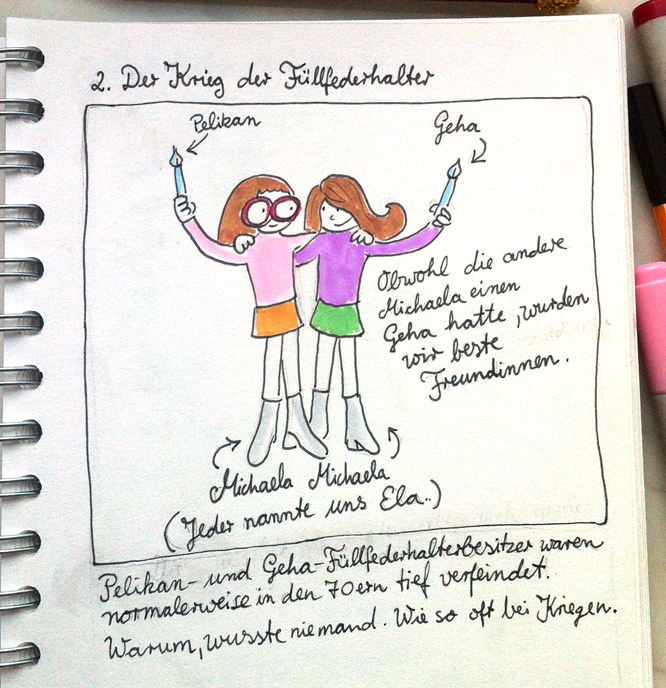 2. Der Krieg der Füllfederhalter
Pelikan
Geha
Obwohl die andere
Michaela einen
Geha hatte, wurden
wir beste
Freundinnen.
Michaela Michaela
(Jeder nannte uns Ela..)
Pelikan- und Geha-Füllfederhalterbesitzer waren
normalerweise in den 70ern tief verfeindet.
Warum, wusste niemand. Wie so oft bei Kriegen.